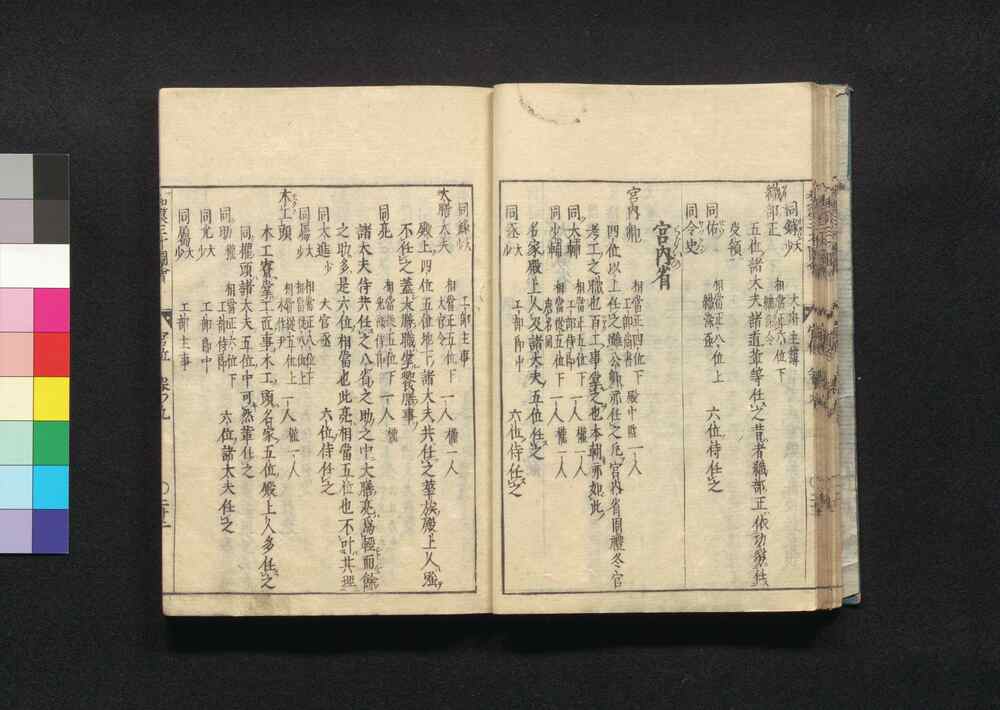 同錄大少 大府主簿
織部正 相當正六位下 織染令
五位諸大夫諸道輩等任之昔者織部正依功勞任
受領
同佑 相當正八位上 織染丞 六位侍任之
同令史
宮內省
宮內卿 相當正四位下 工部尚書 殿中監 一人
四位以上任之雖公卿亦任之凡宮內省周禮冬官
考工之職也百工事掌之也本朝亦如此
同大輔 相當正五位下 工部侍郎 一人權一人
同少輔 相當從五位下 唐名同 一人權一人
名家殿上人及諸大夫五位任之
同丞大少 工部郎中 六位侍任之
同錄大少 工部主事
大膳大夫 相當正五位下 大官令 一人權一人
殿上四位五位地下諸大夫共任之華族殿上人強
不任之蓋大膳職掌饗膳事
同亮 相當從五位下 一人權
諸大夫侍共任之八省之助之中大膳亮為輕而餘
之助多是六位相當也此亮相當五位也不叶其理
同大進少 大官丞 六位侍任之
同屬大少 相當正八位下 相當從八位上
木工頭 相當從五位上 一人權一人
木工寮掌工匠事木工頭名家五位殿上人多任之
同權頭諸大夫五位中可然輩任之
同助權 相當正六位下 工部侍郎 六位諸大夫任之
同允大少 工部郎中
同屬大少 工部主事